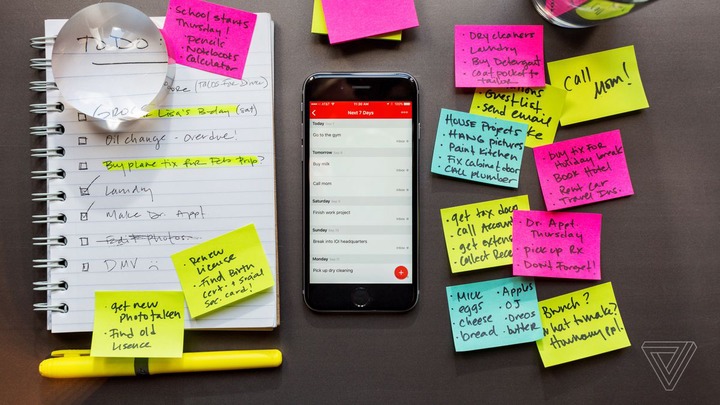 TO DO:
(TACOS FOR DINNER)
Lisa's B-day (sat)
Oil change - Overdue!
Buy plane tix for Feb trip?
Laundry
Make Dr. Appt
Edit photos
DMV
School starts
Thursday!
• Pencils
• Notebooks
• Calculator
• Renew
License
• Find Birth
cert. + social
sec. card!
• get new
photo taken
• Find old
Licence
AT&T
11:30 AM
100%
Next 7 Days
Today
Go to the gym
Inbox
Tomorrow
Buy milk
Inbox
Call mom
Inbox
Saturday
Finish work project
Inbox
Sunday
Break into IOI headquarters
Inbox
Monday
Pick up dry cleaning
• Dry cleaners
• Laundry
• Buy Detergent
• Coat pocket to
tailor
Call
Mom!
Guest list
- send email
House Projects
• Hang pictures
• Paint kitchen
• Fix cabinet door
Call plumber
• Buy tix for
Holiday break
• Book Hotel
• Rent Car
• Travel Ins.
• get tax docs
• Call
• get
• Collect
• Dr. Appt
Thursday
• pick up Rx
• Don't Forget!
• Milk
• eggs
• cheese
• bread
• Apples
• OJ
• Oreos
• butter
Brunch?
What to make?